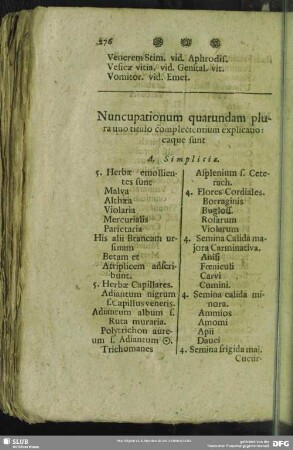 276
Venerem Stim. vid. Aphrodis.
Vesicæ vitia. vid. Genital. vit.
Vomitor. vid. Emet.
Nuncupationum quarundam plu-
ra uno titulo complectentium explicatio:
eaque sunt
A. Simplicia.
5. Herbæ emollien-
tes sunt
Malva
Althæa
Violaria
Mercurialis
Parietaria
His alii Brancam ur-
sinam
Betam et
Atriplicem adscri-
bunt.
5. Herbæ Capillares.
Adiantum nigrum
s. Capillus veneris.
Adiantum album s.
Ruta muraria.
Polytrichon aure-
um s. Adiantum ☉.
Trichomanes
Asplenium s. Cete-
rach.
4. Flores Cordiales.
Borraginis
Bugloss.
Rosarum
Violarum
4. Semina Calida ma-
jora Carminativa.
Anisi
Fœniculi
Carvi
Cumini.
4. Semina calida mi-
nora.
Ammios
Amomi
Apii
Dauci
4. Semina frigida maj.
Cucur-
SLUB
DFG